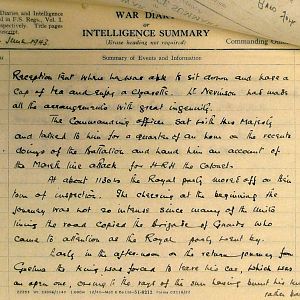 WAR DIARY
or
INTELLIGENCE SUMMARY
(Erase heading not required)
Diaries and Intelligence
d in F.S. Regs., Vol. I.
respectively. Title pages
script.
June 1943
Commanding
Summary of Events and Information
Reception tent where he was able to sit down and have a
cup of tea and enjoy a cigarette. Lt Nevinson had made
all the arrangements with great ingenuity.
The Commanding officer sat with His Majesty
and talked to him for a quarter of an hour on the recent
doings of the Battalion and hand him an account of
the Mareth line attack for HRH the Colonel.
At about 1130 hrs the Royal party moved off on their
tour of inspection. The cheering at the beginning of the
journey was not so intense since many of the Units
lining the road copied the Brigade of Guards who
came to attention as the Royal party went by.
Early in the afternoon on the return journey from
the King was forced to leave his car, which was
an open one, owing to the rays of the sun having burnt his